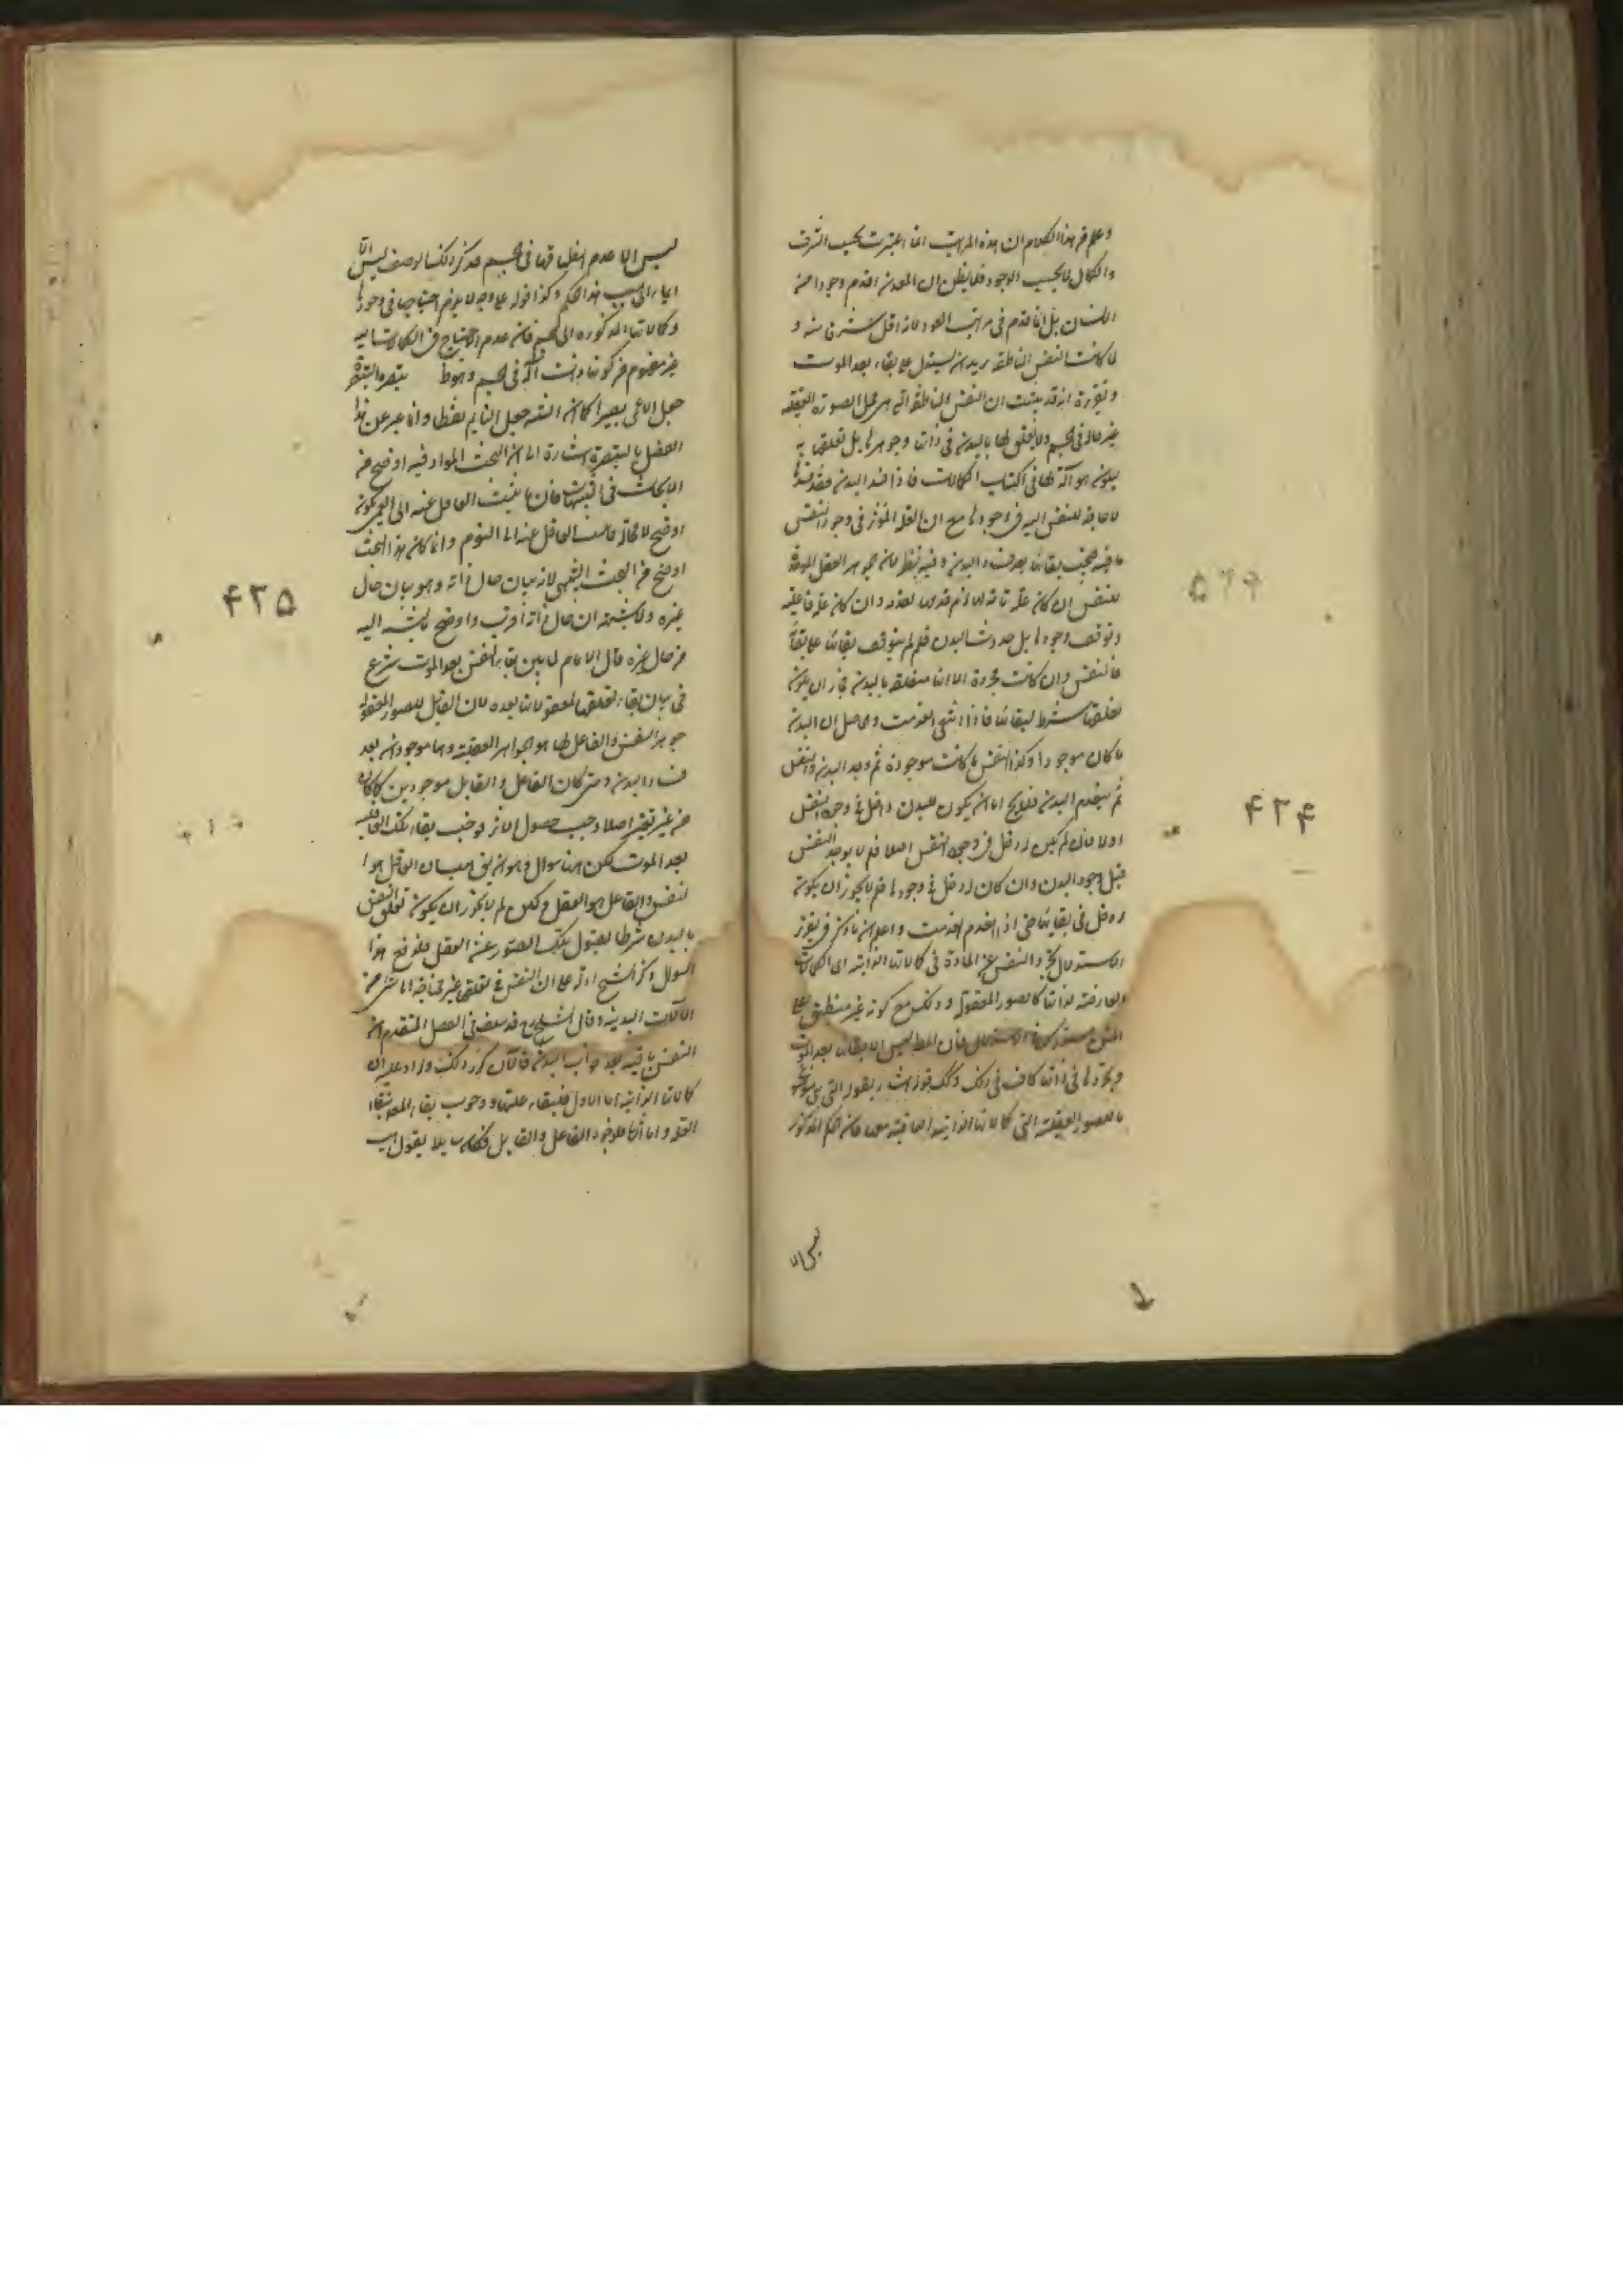 وعلم من هذا الكلام ان هذه المراتب انما اعتبرت بحسب الشرف
والكمال لا بحسب الوجود فلا يظن ان المعدن اقدم وجودا من
الانسان بل انما قدم في مراتب العود لانه اقل شرفا منه و
لما كانت النفس الناطقة يريد ان يستدل على بقاء بعد الموت
وتقريره انه قد ثبت ان النفس الناطقة التي هي محل الصورة العقلية
غير حالة في الجسم ولا تعلق لها بالبدن في ذاتها وجوهرها بل تعلقها به
ليكون هو آلة لها في اكتساب الكمالات فاذا فسد البدن فقد فسد ما
لا حاجة للنفس اليه في وجودها مع ان العلة المؤثرة في وجود النفس
باقية فيجب بقاؤها بعد فساد البدن وفيه نظر لان الجوهر العقلي الموجد
للنفس ان كان علة تامة لها لزم قدمها لقدمه وان كان علة فاعلية
وتوقف وجودها على حدوث البدن فلم لم يتوقف بقاؤها على بقائه
فالنفس وان كانت مجردة الا انها متعلقة بالبدن فجاز ان يكون
تعلقها شرطا لبقائها فاذا انتفى انعدمت والحاصل ان البدن
ما كان موجودا وكذا النفس ما كانت موجودة ثم وجد البدن والنفس
ثم ينعدم البدن فلا يخ اما ان يكون للبدن دخل في وجود النفس
اولا فان لم يكن له دخل في وجود النفس اصلا فلم لا يوجد النفس
قبل وجود البدن وان كان له دخل في وجودها فلم لا يجوز ان يكون
له دخل في بقائها حتى اذا انعدم انعدمت واعلم ان ما ذكر في تقرير
الاستدلال تجرد النفس عن المادة في كمالاتها الذاتية اي الكمالات
العارضة لذاتها كالصور المعقولة وذلك مع كونه غير منطبق على
المتن مستدرك في الاستدلال فان المط ليس الا بقاؤها بعد الموت
وتجردها في ذاتها كاف في ذلك وكذلك قوله اشار بقوله التي هي موضوع
ما للصور العقلية التي كمالاتها الذاتية الباقية معها فان الحكم المذكور
ليس الا
۴۲۴
ليس الا عدم انطباقها في الجسم فذكر ذلك الوصف ليس الا
ايماء الى سبب هذا الحكم وكذا قوله على وجه لا يلزم احتياجها في وجودها
وكمالاتها المذكورة الى الجسم فان عدم الاحتياج في الكمالات اليه
غير مفهوم من كونها ذات آلة في الجسم وهو ط تبصرة التبصرة
جعل الاعمى بصيرا كما ان التنبيه جعل النايم يقظا وانما عبر عن هذا
الفصل بالتبصرة اشارة الى ان البحث المورد فيه اوضح من
الابحاث في التنبيهات فان ما ينسب الغافل عنه الى العمى يكون
اوضح لا محالة مما ينسب الغافل عنه الى النوم وانما كان هذا البحث
اوضح من البحث التنبيهي لانه بيان حال ذاته وهو بيان حال
غيره ولا شبهة ان حال ذاته اقرب واوضح بالنسبة اليه
من حال غيره قال الامام لما بين بقاء النفس بعد الموت شرع
في بيان بقاء تعلقها لمعقولاتها بعده لان القابل للصور المعقولة
جوهر النفس والفاعل لها هو الجواهر العقلية وهما موجودان بعد
فساد البدن ومتى كان الفاعل والقابل موجودين كما كانا
من غير تغير اصلا وجب حصول الاثر فوجب بقاء تلك التعقلات
بعد الموت لكن هنا سوال وهو ان يق هب ان القابل هو ا
لنفس والفاعل هو العقل ولكن لم لا يجوز ان يكون تعلق النفس
بالبدن شرطا لقبول تلك الصور عن العقل فلدفع هذا
السوال ذكر الشيخ ادلة على ان النفس في تعقلها غير محتاجة الى شيء من
الآلات البدنية وقال الشارح قد سلف في الفصل المتقدم ان
النفس باقية بعد خراب البدن فالآن كرر ذلك وزاد عليه ان
كمالاتها الذاتية اما الاول فلبقاء علتها ووجوب بقاء المعلول ببقاء
العلة واما الثاني فلوجود الفاعل والقابل فكانه يقول
۴۲۵